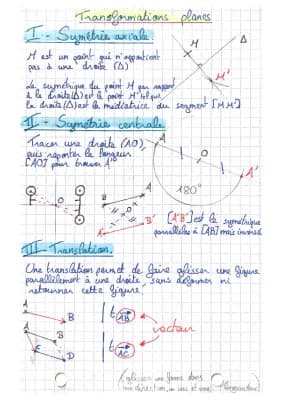 Transformations planes
I - Symétrie axiale
M est un point qui n'appartient
pas à une droite (Δ)
Le symétrique du point M par rapport
à la droite (Δ) est le point M' tel que
la droite (Δ) est la médiatrice du segment [MM']
M
Δ
M'
II - Symétrie centrale
Tracer une droite (AO),
puis reporter la longueur
[AO] pour trouver A'
A
O
A'
180°
O
B
A
O
A'
B'
[A'B'] est le symétrique
parallèle à [AB] mais inversé
III - Translation
Une translation permet de faire glisser une figure
parallèlement à une droite, sans déformer ni
retourner cette figure
A
B
t AB
vecteur
A
E
D
t AC
(glisser une forme dans
une direction, un sens et une